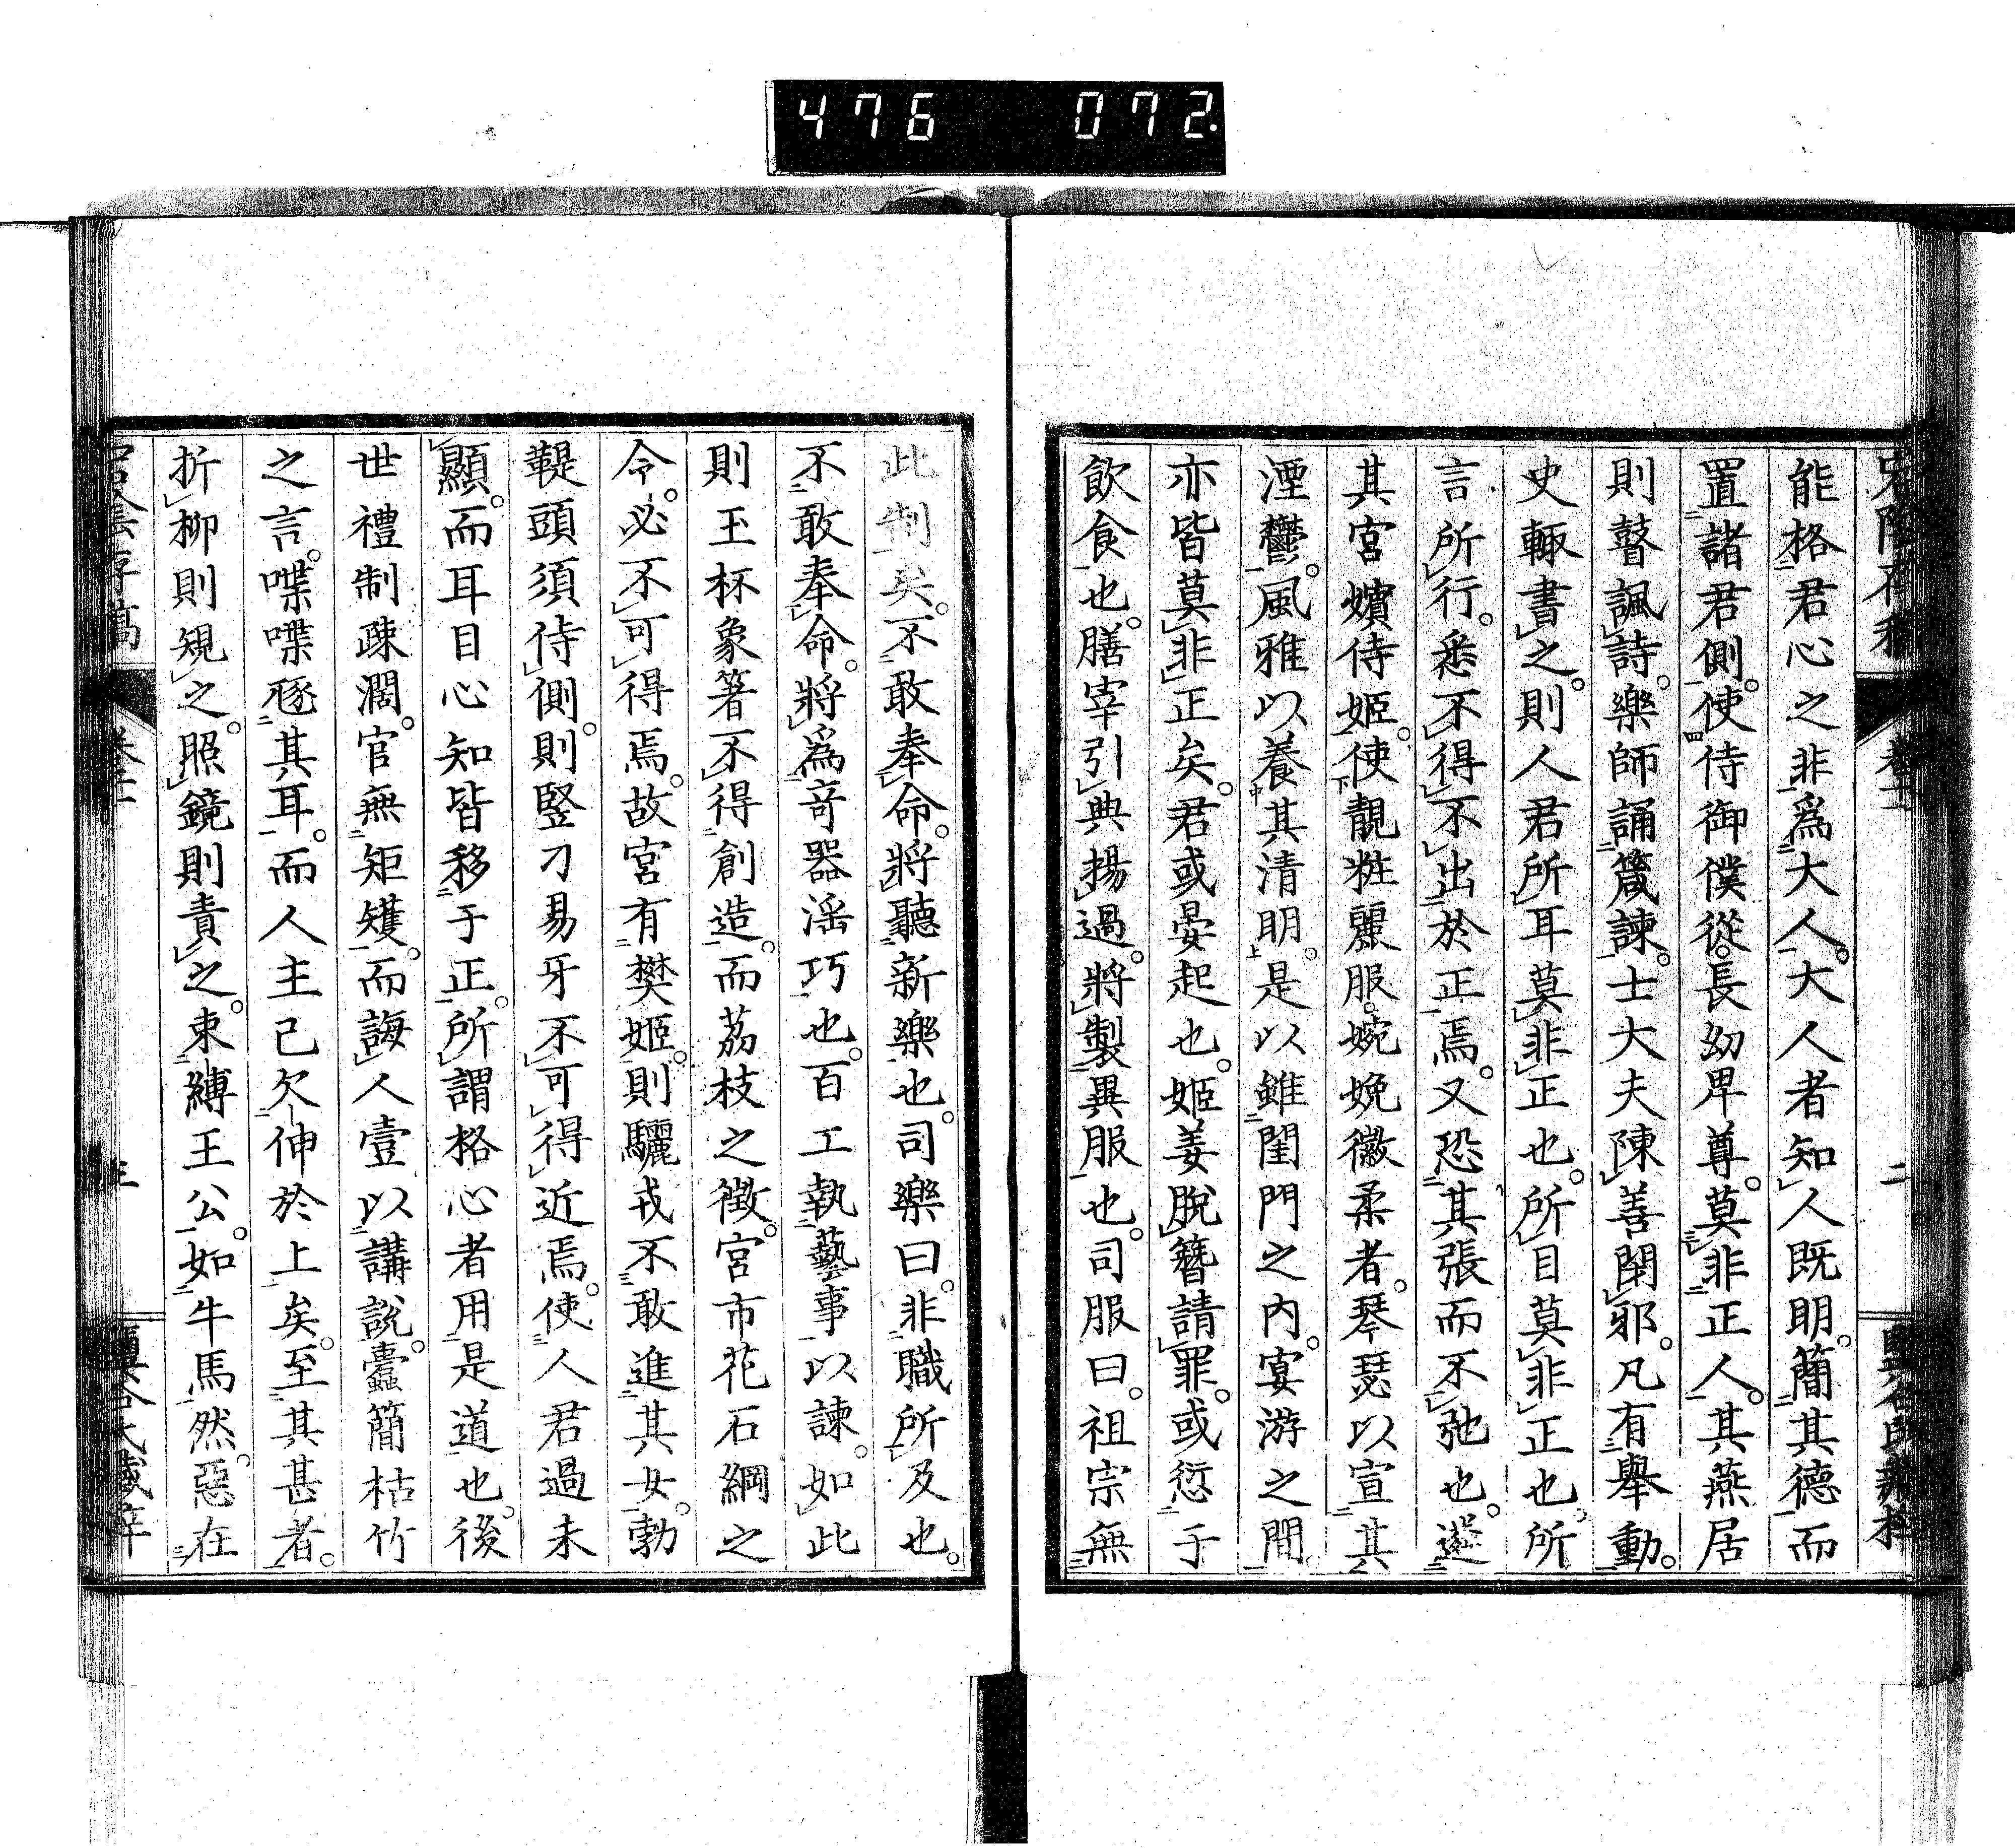 476 072
能格君心之非爲大人。大人者知人既明。簡其德而
置諸君側。使侍御僕從。長幼卑尊。莫非正人。其燕居
則瞽諷詩。樂師誦箴諫。士大夫陳善閉邪。凡有舉動。
史輙書之。則人君所耳莫非正也。所目莫非正也。所
言所行。悉不得不出於正焉。又恐其張而不弛也。選
其宮嬪侍姬。使靚粧麗服。婉娩徽柔者。琴瑟以宣其
湮鬱。風雅以養其清明。是以雖閨門之內。宴游之間。
亦皆莫非正矣。君或晏起也。姬姜脫簪請罪。或愆于
飲食也。膳宰引典揚過。將製異服也。司服曰。祖宗無
此制矣。不敢奉命。將聽新樂也。司樂曰。非職所及也。
不敢奉命。將爲奇器淫巧也。百工執藝事以諫。如此
則玉杯象箸不得創造。而荔枝之徵。宮市花石綱之
令。必不可得焉。故宮有樊姬。則驪戎不敢進其女。勃
鞮頭須侍側。則竪刁易牙不可得近焉。使人君過未
顯。而耳目心知皆移于正。所謂格心者用是道也。後
世禮制疎濶。官無矩矱。而誨人壹以講說。蠹簡枯竹
之言。喋喋聒其耳。而人主已欠伸於上矣。至其甚者。
折柳則規之。照鏡則責之。束縛王公。如牛馬然。惡在